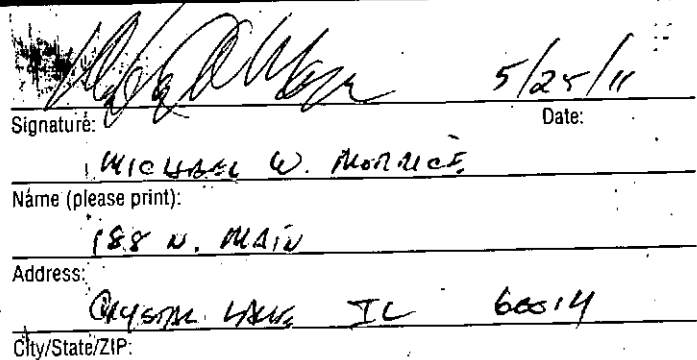 5/25/11
Signature: Date:
MICHAEL W.
Name (please print):
188 N. MAIN
Address:
CRYSTAL LAKE IL 60014
City/State/ZIP: